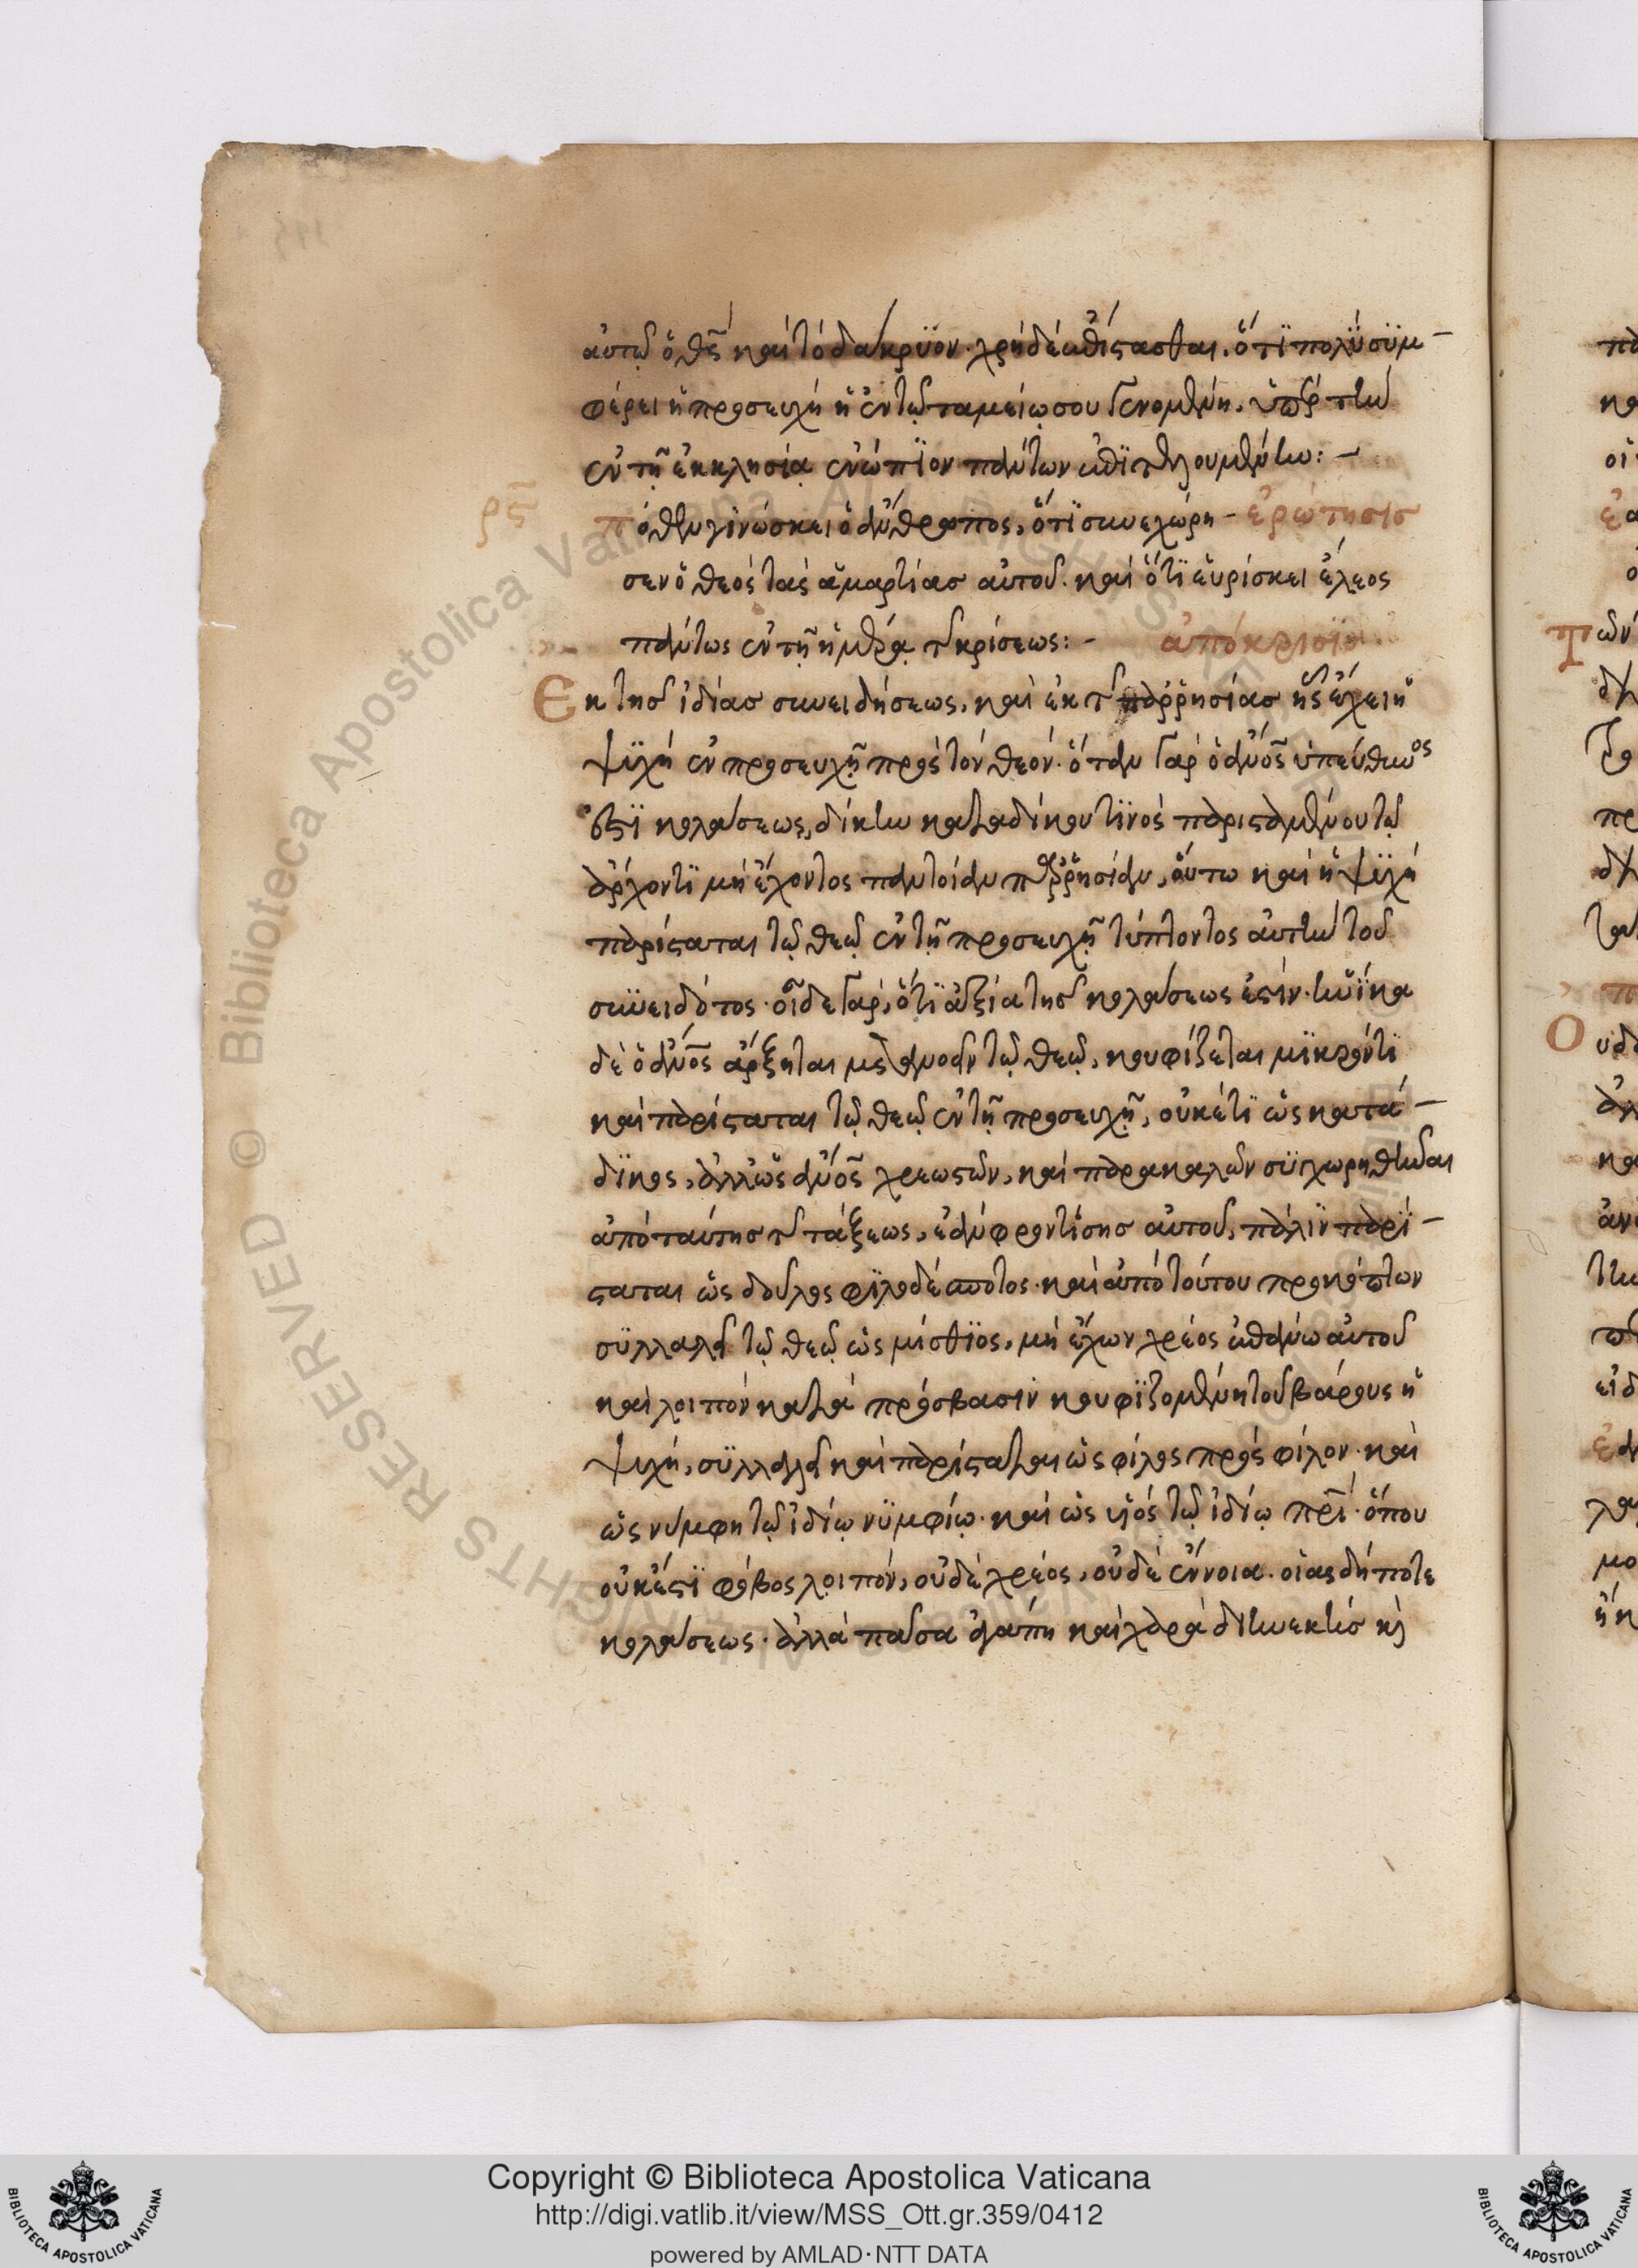 αὐτῷ ὁ θς̃ καὶ τὸ δάκρϋον. χρὴ δὲ ἐπίστασθαι, ὅτϊ πολὺ σϋμ-
φέρει ἡ προσευχὴ ἡ ἐν τῷ ταμείῳ σου γενομένη, ὑπὲρ τὴν
ἐν τῇ ἐκκλησίᾳ ἐνώπϊον πάντων ἐπϊτελουμένην: -
ρς̃
πόθεν γϊνώσκει ὁ ἄνθρωπος, ὅτϊ συνεχώρη- ἐρώτησις
σεν ὁ θεὸς τὰς ἁμαρτίας αὐτοῦ. καὶ ὅτϊ εὑρίσκει ἔλεος
πάντως ἐν τῇ ἡμέρᾳ τῆς κρίσεως: - ἀπόκρισϊς
Εκ τῆς ἰδίας συνειδήσεως, καὶ ἐκ τῆς παρρησίας ἧς ἔχει ἡ
ψϋχὴ ἐν προσευχῇ πρὸς τὸν θεόν. ὅταν γὰρ ὁ ἄνος̃ ὑπεύθυνος
ἐστϊ κολάσεως, δίκην καταδίκου τϊνὸς παρισταμένου τῷ
ἄρχοντϊ μὴ ἔχοντος παντοίαν παρρησίαν, οὕτω καὶ ἡ ψϋχὴ
παρίσταται τῷ θεῷ ἐν τῇ προσευχῇ τύπτοντος αὐτὴν τοῦ
συνειδότος. οἶδε γὰρ, ὅτϊ ἀξία τῆς κολάσεως ἐστίν. ἡνίκα
δὲ ὁ ἄνος̃ ἄρξηται μετανοεῖν τῷ θεῷ, κουφίζεται μϊκρόντϊ
καὶ παρίσταται τῷ θεῷ ἐν τῇ προσευχῇ, οὐκέτϊ ὡς κατά-
δϊκος, ἀλλ' ὡς ἄνος̃ χρεωστῶν, καὶ παρακαλῶν σϋγχωρηθῆναι
ἀπὸ ταύτης τῆς τάξεως, ἐὰν φροντίσης αὐτοῦ, πάλϊν παρϊ-
σταται ὡς δοῦλος φϊλοδέσποτος. καὶ ἀπὸ τούτου προκόπτων
σϋλλαλεῖ τῷ θεῷ ὡς μίσθϊος, μὴ ἔχων χρέος ἐπάνω αὐτοῦ
καὶ λοιπὸν κατὰ πρόσβασιν κουφϊζομένη τοῦ βάρους ἡ
ψυχὴ, σϋλλαλεῖ καὶ παρίσταται ὡς φίλος πρὸς φίλον. καὶ
ὡς νύμφη τῷ ἰδίῳ νϋμφίῳ. καὶ ὡς υἱὸς τῷ ἰδίῳ πρϊ̃. ὅπου
οὐκ ἔστϊ φόβος λοιπὸν, οὐδὲ χρέος, οὐδὲ ἔννοια. οἱασδήποτε
κολάσεως. ἀλλὰ πᾶσα ἀγάπη καὶ χαρὰ διηνεκὴς κὶ
Copyright © Biblioteca Apostolica Vaticana
http://digi.vatlib.it/view/MSS_Ott.gr.359/0412
powered by AMLAD·NTT DATA